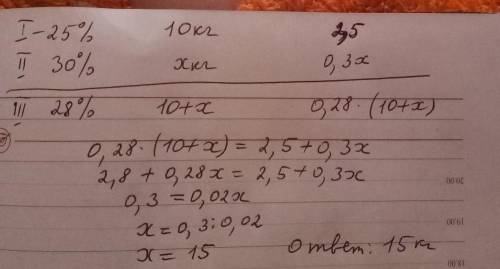 I - 25% 10 кг 2,5
II 30% x кг 0,3x
III 28% 10+x 0,28·(10+x)
0,28·(10+x) = 2,5+0,3x
2,8 + 0,28x = 2,5+0,3x
0,3 = 0,02x
x = 0,3:0,02
x = 15 Ответ: 15 кг
20.00
19.00
18.00